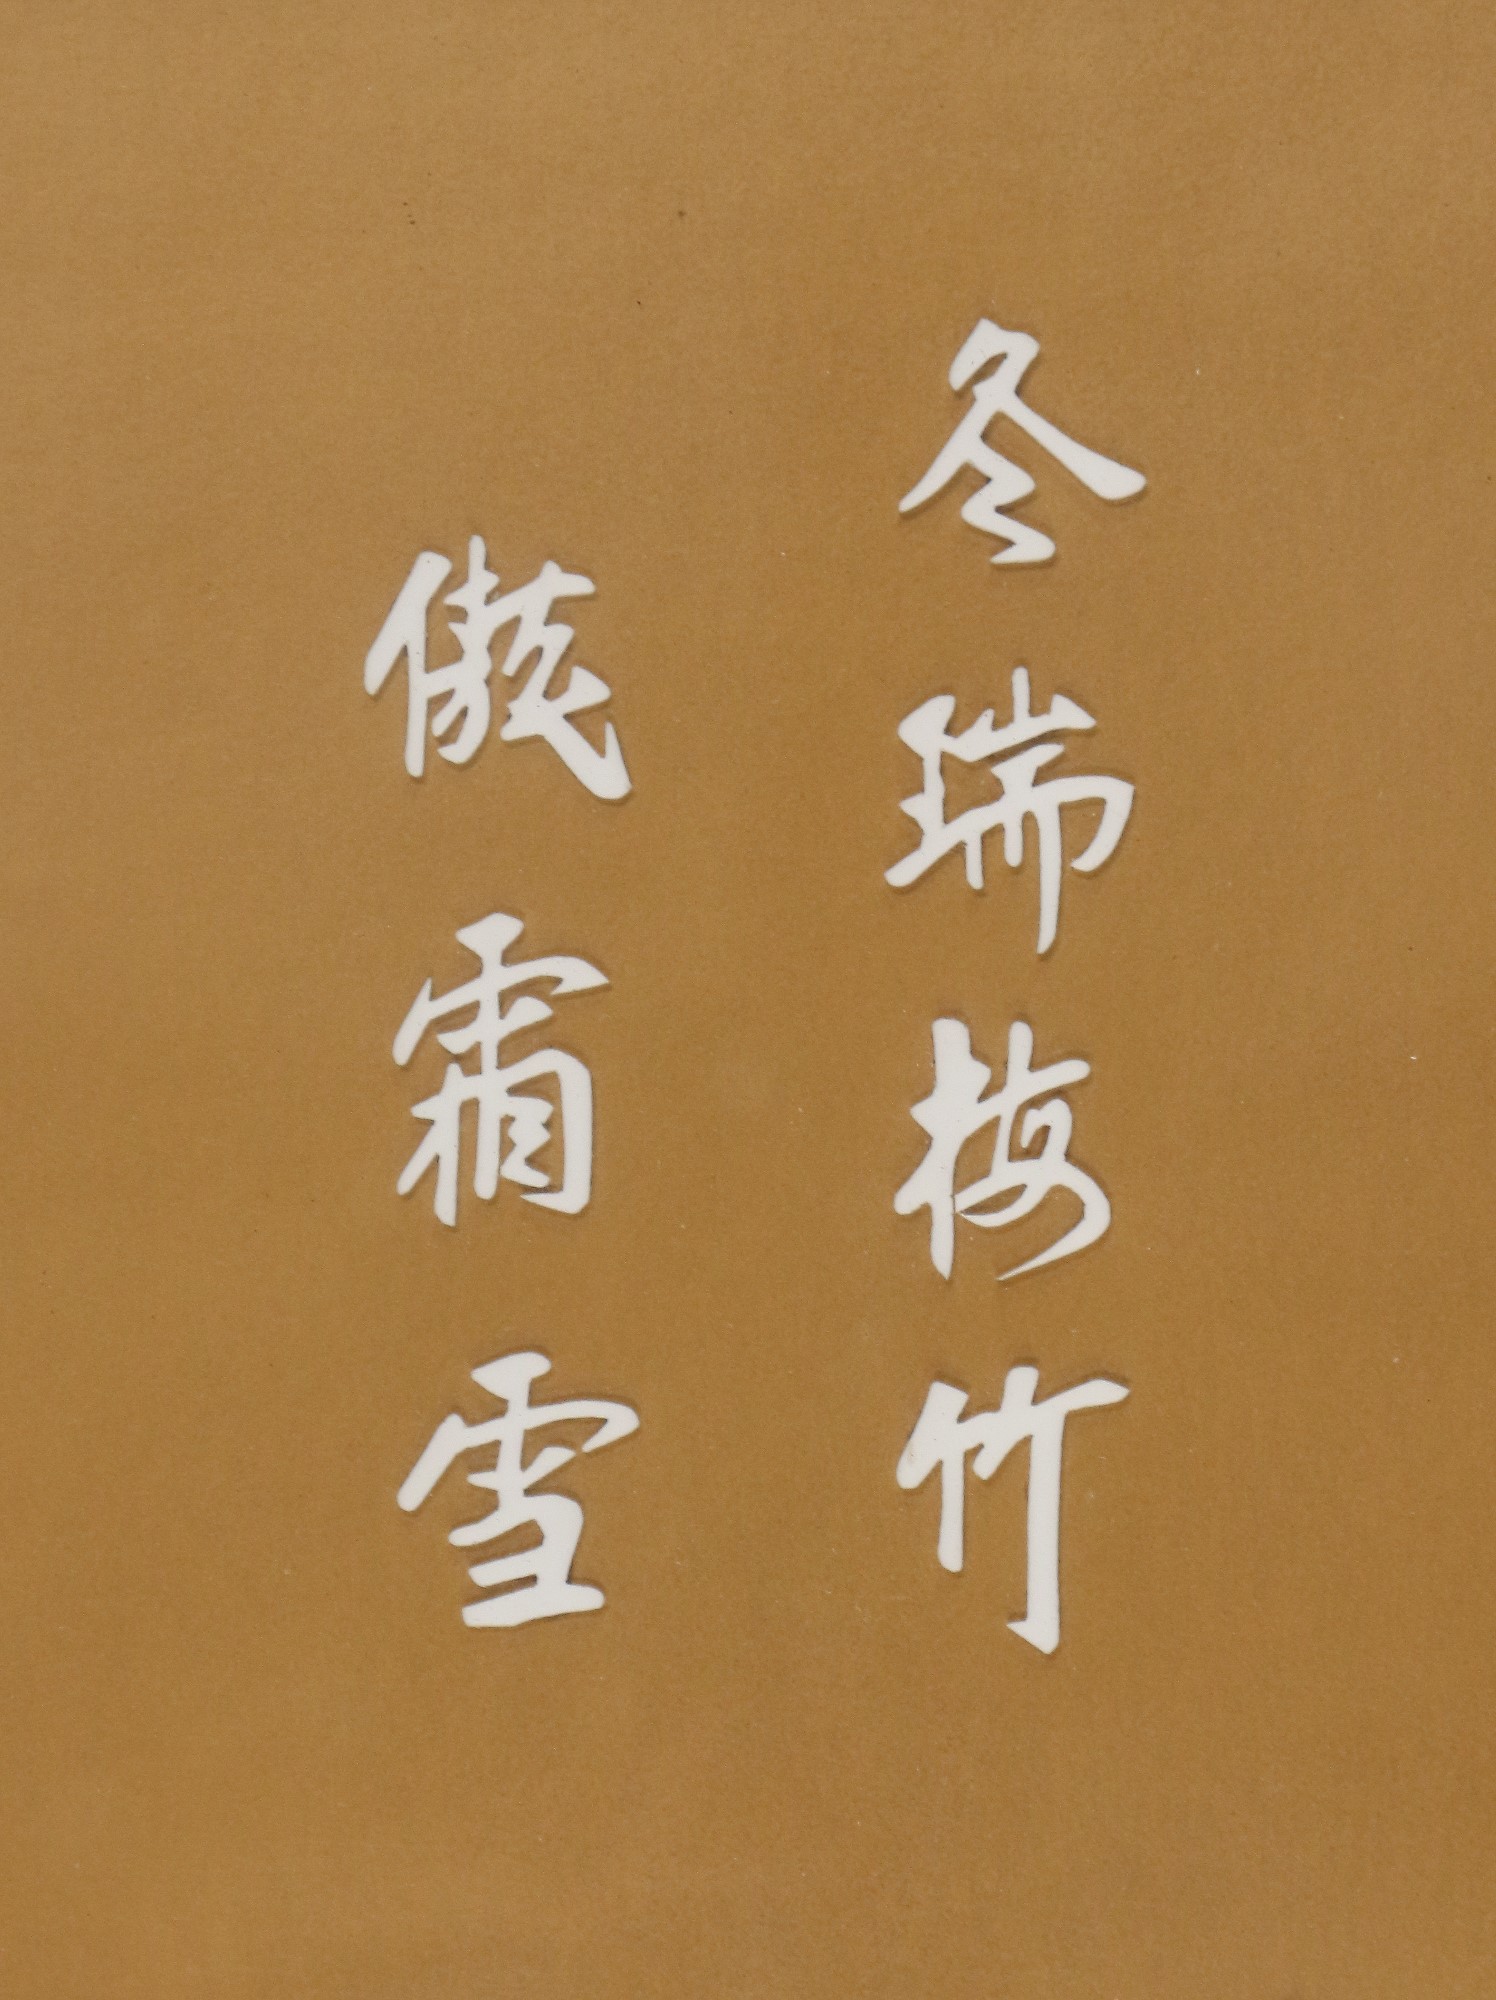 冬瑞梅竹
傲霜雪